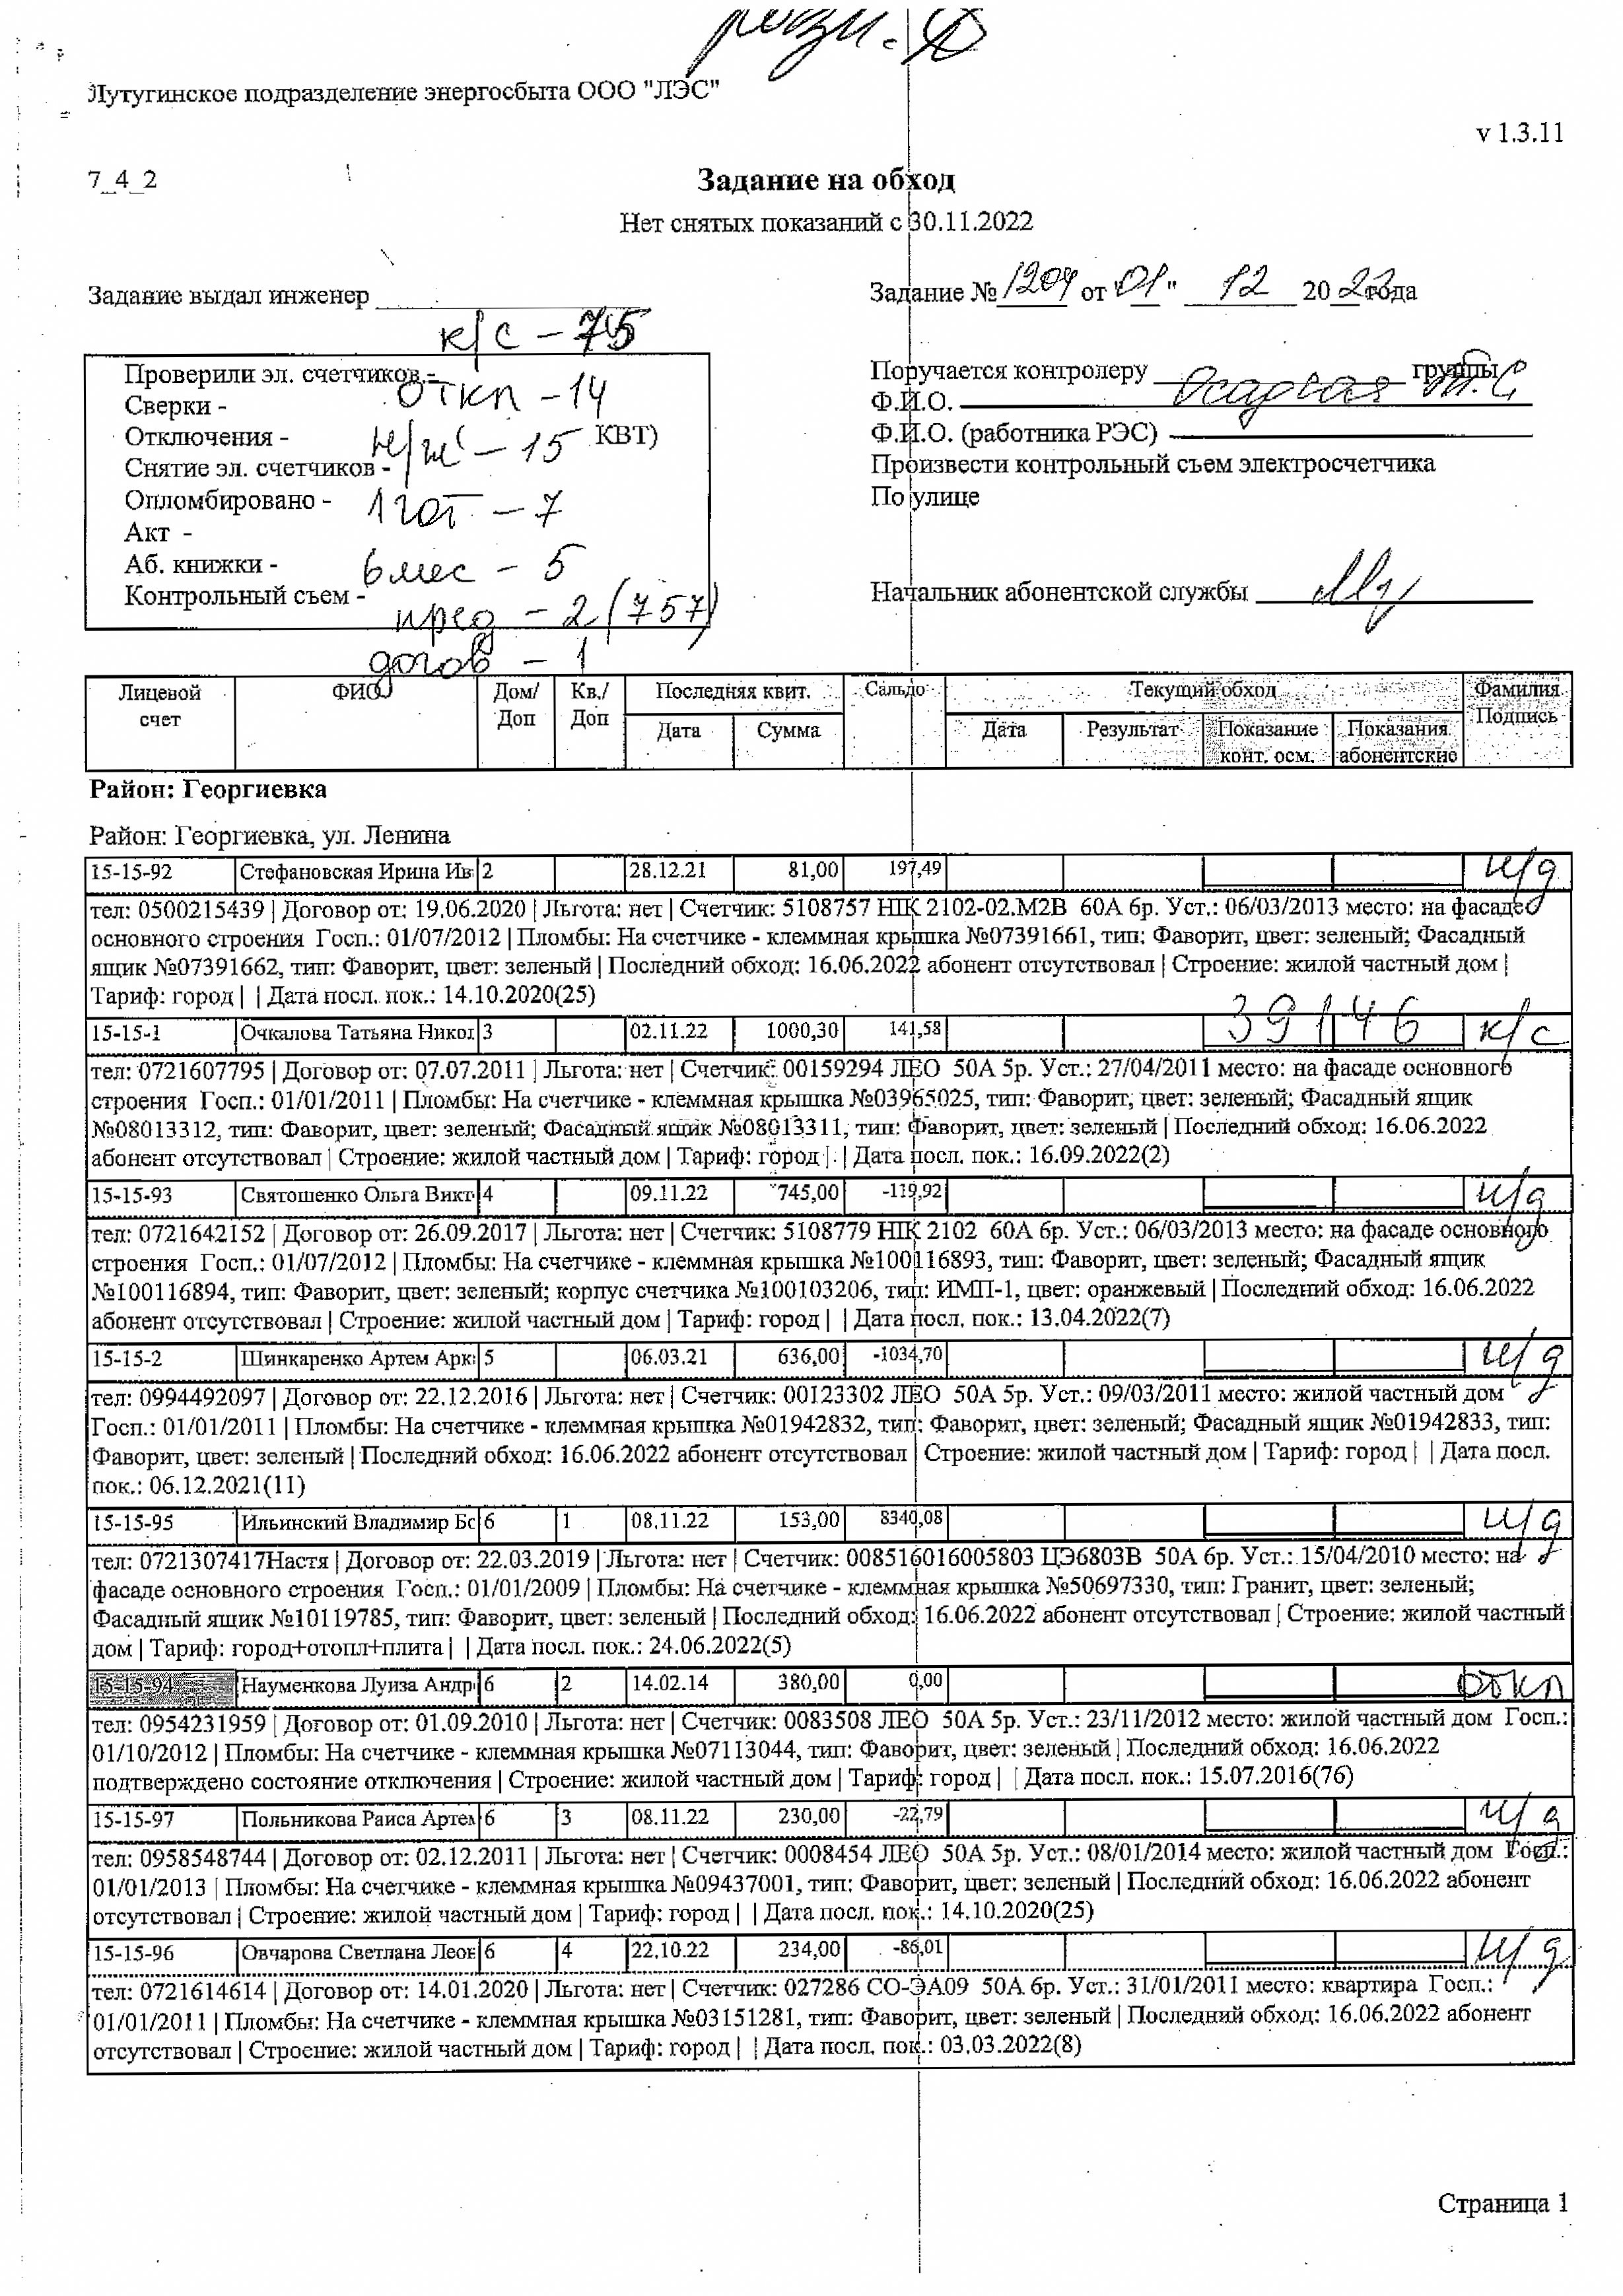 Лутугинское подразделение энергосбыта ООО "ЛЭС"
v 1.3.11
7_4_2
Задание на обход
Нет снятых показаний с 30.11.2022
Задание выдал инженер
Задание № 1204 от "01" 12 2022 года
к/с - 75
Проверили эл. счетчиков -
откл - 14
Сверки -
Отключения - н/ж - 15 КВТ)
Снятие эл. счетчиков -
Опломбировано - 1 год - 7
Акт -
Аб. книжки - 6 мес - 5
Контрольный съем -
пред - 2 (757)
догов - 1
Поручается контролеру группы
Ф.И.О.
Ф.И.О. (работника РЭС)
Произвести контрольный съем электросчетчика
По улице
Начальник абонентской службы
Лицевой счет ФИО Дом/Доп Кв./Доп Последняя квит. Сальдо Текущий обход Фамилия Подпись
Дата Сумма Дата Результат Показание конт. осм. Показания абонентские
Район: Георгиевка
Район: Георгиевка, ул. Ленина
15-15-92 Стефановская Ирина Ив 2 28.12.21 81,00 197,49 н/д
тел: 0500215439 | Договор от: 19.06.2020 | Льгота: нет | Счетчик: 5108757 НІК 2102-02.М2В 60А 6р. Уст.: 06/03/2013 место: на фасаде
основного строения Госп.: 01/07/2012 | Пломбы: На счетчике - клеммная крышка №07391661, тип: Фаворит, цвет: зеленый; Фасадный
ящик №07391662, тип: Фаворит, цвет: зеленый | Последний обход: 16.06.2022 абонент отсутствовал | Строение: жилой частный дом |
Тариф: город | | Дата посл. пок.: 14.10.2020(25)
15-15-1 Очкалова Татьяна Никол 3 02.11.22 1000,30 141,58 39146 к/с
тел: 0721607795 | Договор от: 07.07.2011 | Льгота: нет | Счетчик: 00159294 ЛЕО 50А 5р. Уст.: 27/04/2011 место: на фасаде основного
строения Госп.: 01/01/2011 | Пломбы: На счетчике - клеммная крышка №03965025, тип: Фаворит, цвет: зеленый; Фасадный ящик
№08013312, тип: Фаворит, цвет: зеленый; Фасадный ящик №08013311, тип: Фаворит, цвет: зеленый | Последний обход: 16.06.2022
абонент отсутствовал | Строение: жилой частный дом | Тариф: город | | Дата посл. пок.: 16.09.2022(2)
15-15-93 Святошенко Ольга Викт 4 09.11.22 745,00 -119,92 н/д
тел: 0721642152 | Договор от: 26.09.2017 | Льгота: нет | Счетчик: 5108779 НІК 2102 60А 6р. Уст.: 06/03/2013 место: на фасаде основного
строения Госп.: 01/07/2012 | Пломбы: На счетчике - клеммная крышка №100116893, тип: Фаворит, цвет: зеленый; Фасадный ящик
№100116894, тип: Фаворит, цвет: зеленый; корпус счетчика №100103206, тип: ИМП-1, цвет: оранжевый | Последний обход: 16.06.2022
абонент отсутствовал | Строение: жилой частный дом | Тариф: город | | Дата посл. пок.: 13.04.2022(7)
15-15-2 Шинкаренко Артем Арк 5 06.03.21 636,00 -1034,70 н/д
тел: 0994492097 | Договор от: 22.12.2016 | Льгота: нет | Счетчик: 00123302 ЛЕО 50А 5р. Уст.: 09/03/2011 место: жилой частный дом
Госп.: 01/01/2011 | Пломбы: На счетчике - клеммная крышка №01942832, тип: Фаворит, цвет: зеленый; Фасадный ящик №01942833, тип:
Фаворит, цвет: зеленый | Последний обход: 16.06.2022 абонент отсутствовал | Строение: жилой частный дом | Тариф: город | | Дата посл.
пок.: 06.12.2021(11)
15-15-95 Ильинский Владимир Бс 6 1 08.11.22 153,00 8340,08 н/д
тел: 0721307417Настя | Договор от: 22.03.2019 | Льгота: нет | Счетчик: 008516016005803 ЦЭ6803В 50А 6р. Уст.: 15/04/2010 место: на
фасаде основного строения Госп.: 01/01/2009 | Пломбы: На счетчике - клеммная крышка №50697330, тип: Гранит, цвет: зеленый;
Фасадный ящик №10119785, тип: Фаворит, цвет: зеленый | Последний обход: 16.06.2022 абонент отсутствовал | Строение: жилой частный
дом | Тариф: город+отопл+плита | | Дата посл. пок.: 24.06.2022(5)
15-15-94 Науменкова Луиза Андр 6 2 14.02.14 380,00 0,00 откл
тел: 0954231959 | Договор от: 01.09.2010 | Льгота: нет | Счетчик: 0083508 ЛЕО 50А 5р. Уст.: 23/11/2012 место: жилой частный дом Госп.:
01/10/2012 | Пломбы: На счетчике - клеммная крышка №07113044, тип: Фаворит, цвет: зеленый | Последний обход: 16.06.2022
подтверждено состояние отключения | Строение: жилой частный дом | Тариф: город | | Дата посл. пок.: 15.07.2016(76)
15-15-97 Польникова Раиса Артем 6 3 08.11.22 230,00 -22,79 н/д
тел: 0958548744 | Договор от: 02.12.2011 | Льгота: нет | Счетчик: 0008454 ЛЕО 50А 5р. Уст.: 08/01/2014 место: жилой частный дом Госп.:
01/01/2013 | Пломбы: На счетчике - клеммная крышка №09437001, тип: Фаворит, цвет: зеленый | Последний обход: 16.06.2022 абонент
отсутствовал | Строение: жилой частный дом | Тариф: город | | Дата посл. пок.: 14.10.2020(25)
15-15-96 Овчарова Светлана Леон 6 4 22.10.22 234,00 -86,01 н/д
тел: 0721614614 | Договор от: 14.01.2020 | Льгота: нет | Счетчик: 027286 СО-ЭА09 50А 6р. Уст.: 31/01/2011 место: квартира Госп.:
01/01/2011 | Пломбы: На счетчике - клеммная крышка №03151281, тип: Фаворит, цвет: зеленый | Последний обход: 16.06.2022 абонент
отсутствовал | Строение: жилой частный дом | Тариф: город | | Дата посл. пок.: 03.03.2022(8)
Страница 1